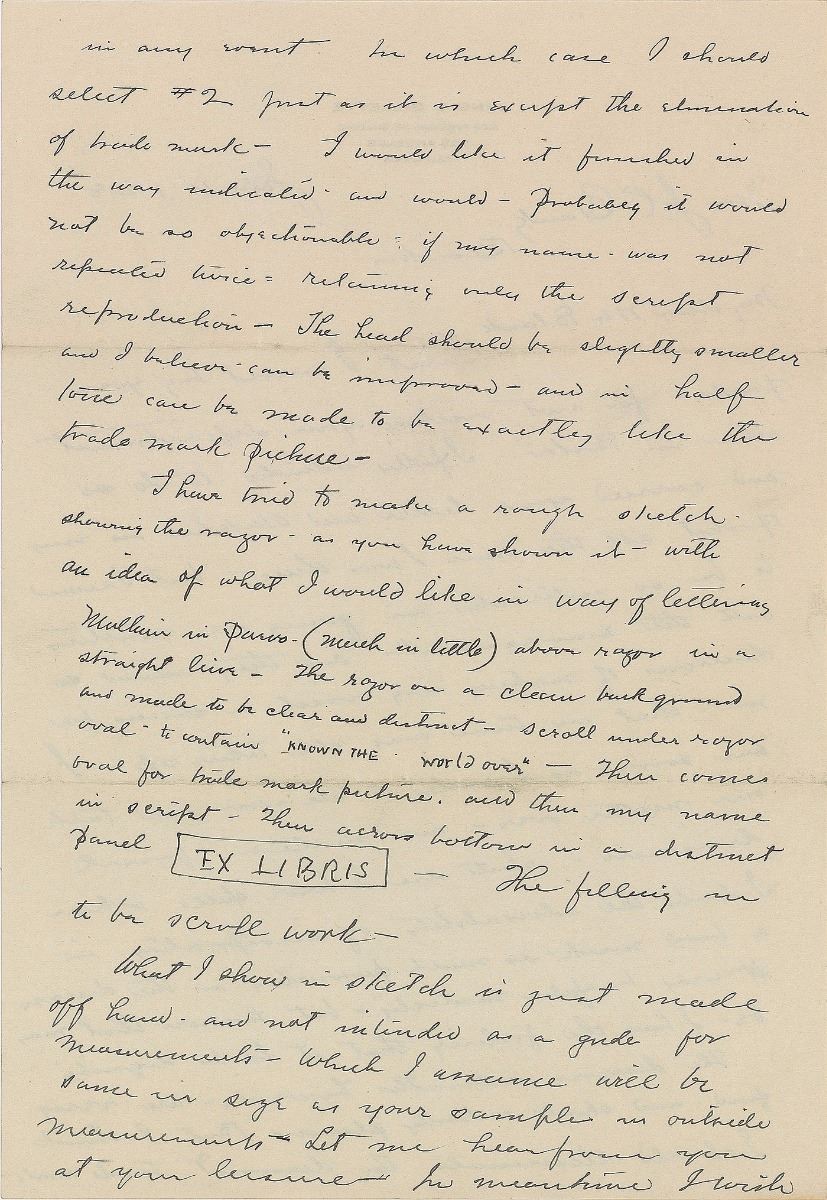 in any event. In which case I should
select #2 just as it is except the elimination
of trade mark — I would like it finished in
the way indicated - and would - Probabley it would
not be so objectionable - if my name - was not
repeated twice = retaining only the script
reproduction — The head should be slightly smaller
and I believe - can be improved - and in half
tone can be made to be exactley like the
trade mark picture —
I have tried to make a rough sketch -
showing the razor - as you have shown it - with
an idea of what I would like in way of lettering
Multum in Parvo - (much in little) above razor in a
straight line - The razor on a clean background
and made to be clear and distinct - scroll under razor
oval - to contain "KNOWN THE world over" — Then comes
oval for trade mark picture. and then my name
in script - Then across bottom in a distinct
Panel EX LIBRIS — The filling in
to be scroll work —
What I show in sketch is just made
off hand - and not intended as a guide for
measurements - Which I assume will be
same in size as your sample in outside
measurements - Let me hear from you
at your leisure - In meantime I wish